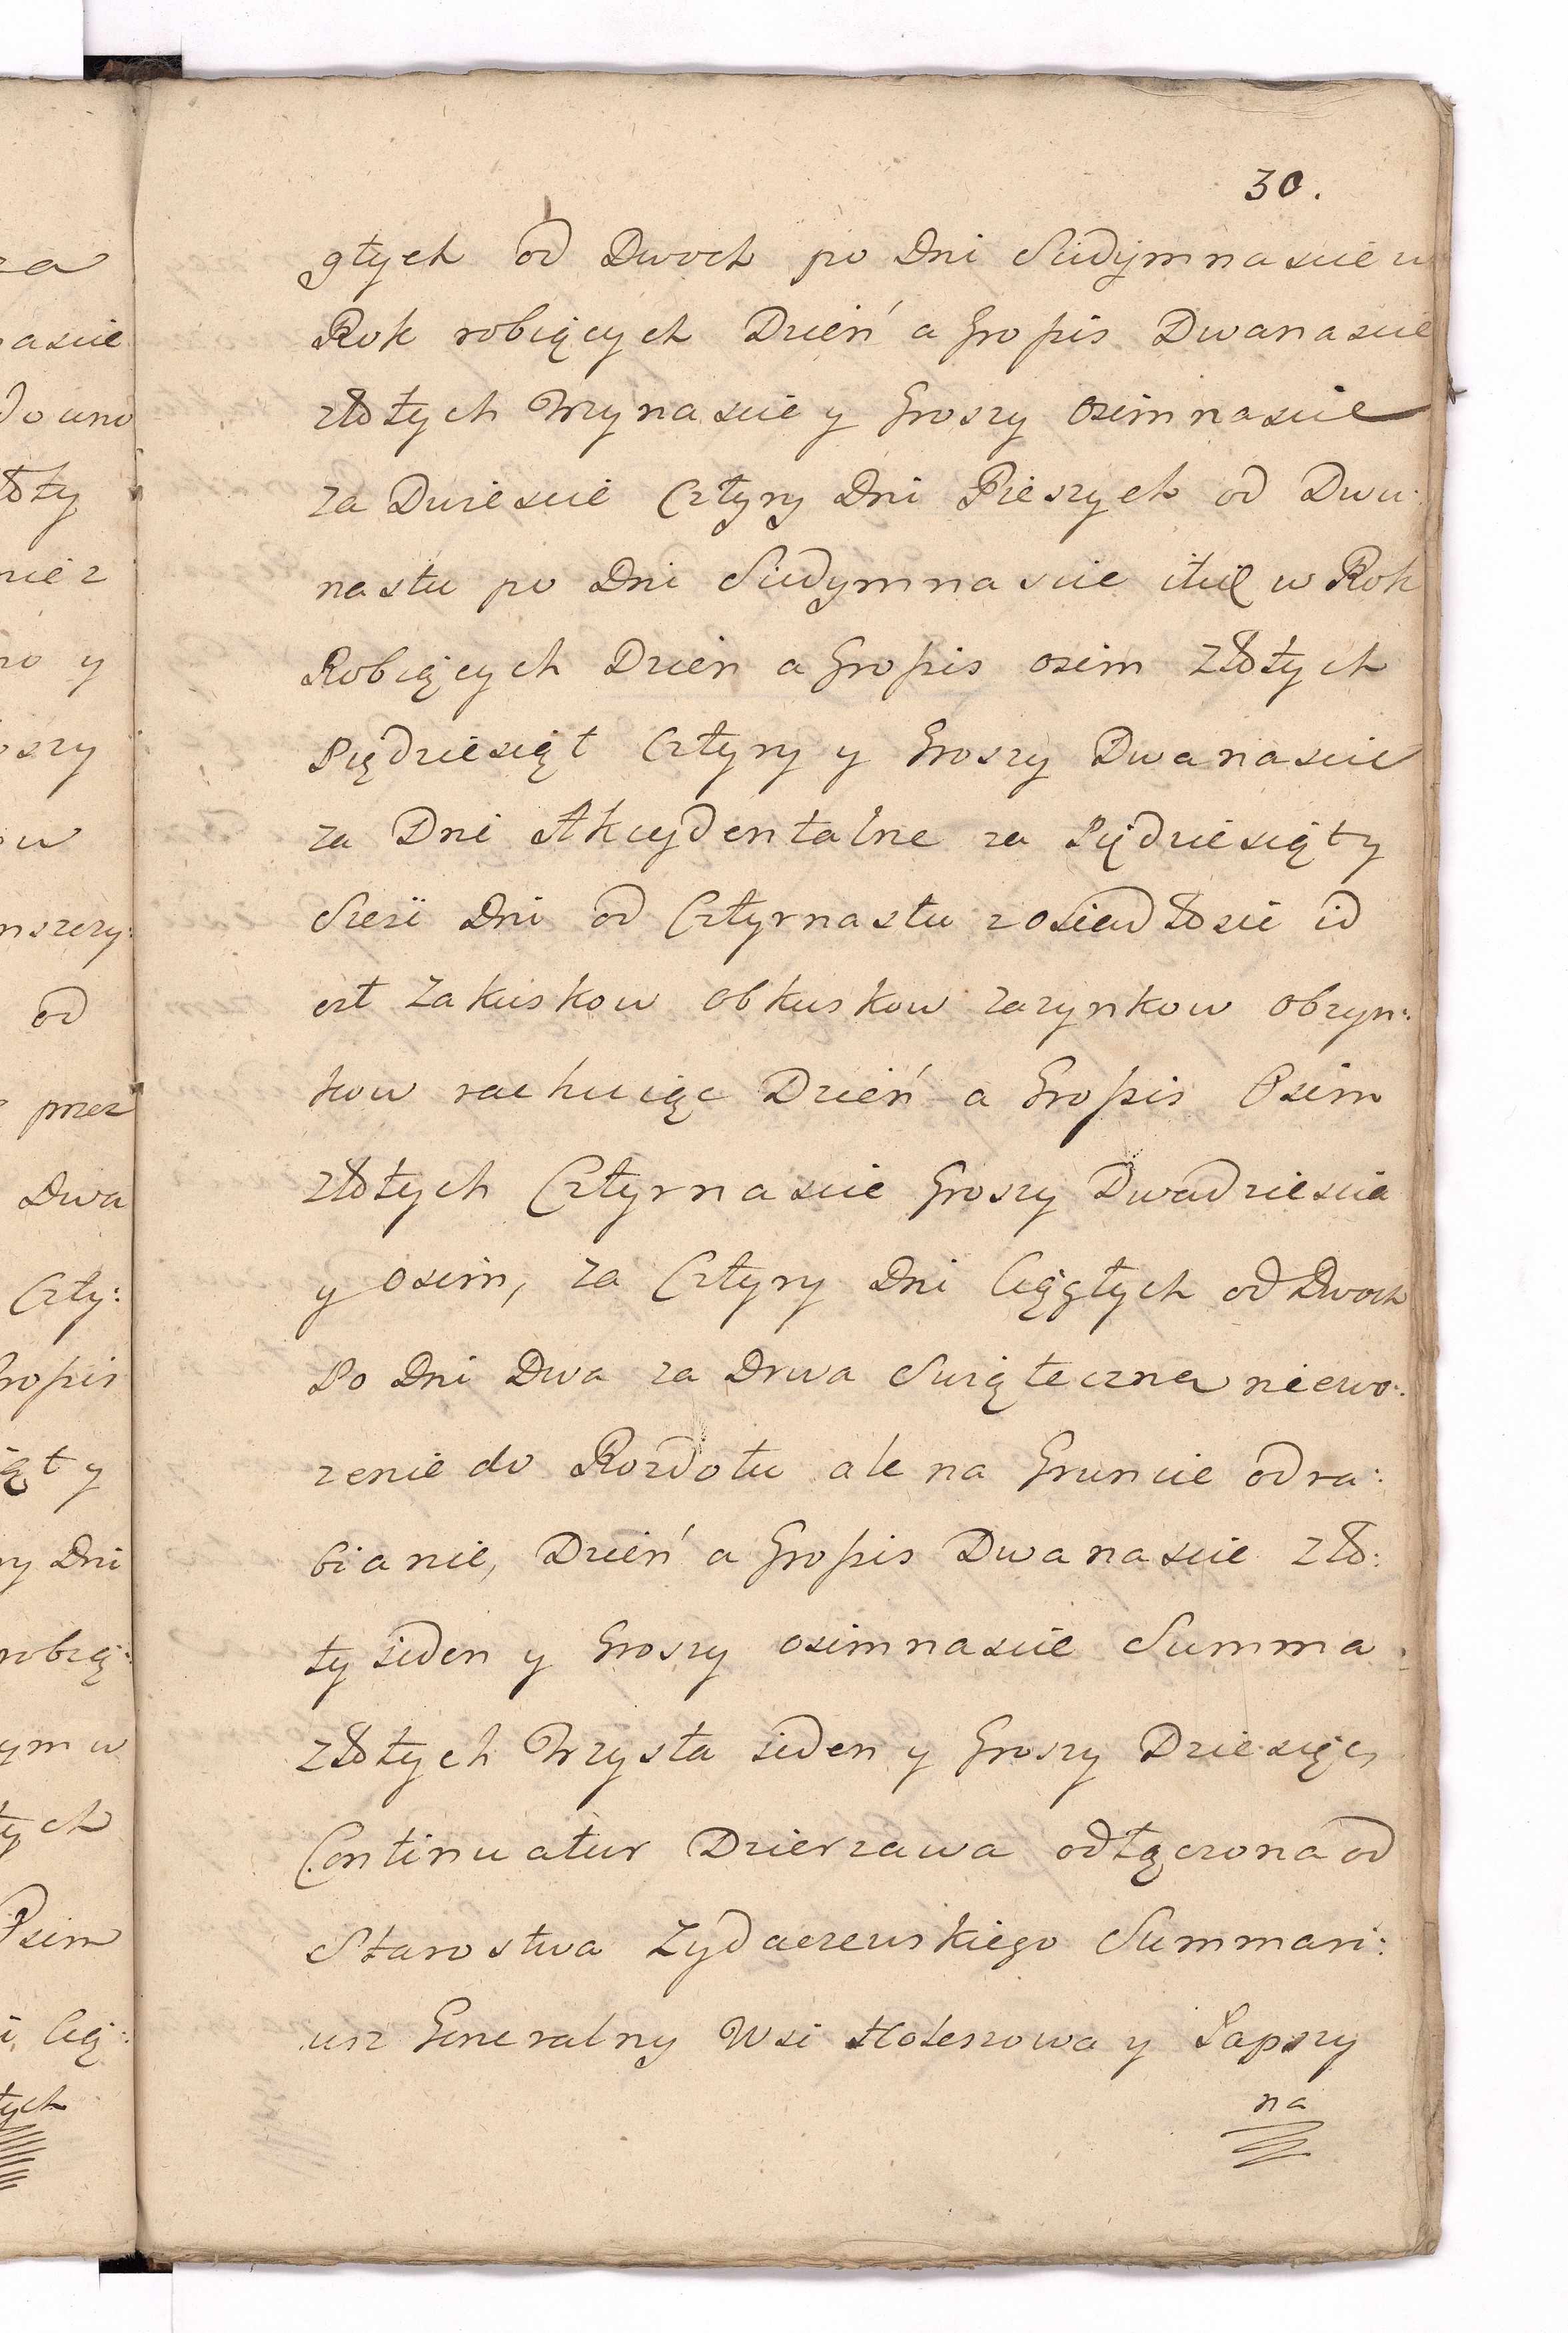 30.
głych od Dwoch po Dni Siedymnascie w
Rok robiących Dzień a Grossis Dwanascie
złotych Trzynascie y Groszy osimnascie
za Dwiescie Cztyry Dni Pieszych od Dwu:
nastu po Dni Siedymnascie itie w Rok
Robiących Dzien a Grossis osim Złotych
Pięcdziesiąt Cztyry y Groszy Dwanascie
za Dni Akcydentalne za Pięcdziesiąt y
Szesc Dni od Cztyrnastu zosiadłosci id
est Zakuskow obkuskow zarzynkow obrzyn:
kow rachuiąc Dzień a Grossis Osim
złotych Cztyrnascie Groszy Dwadziescia
y osim, za Cztyry Dni Ciągłych od Dwoch
Po Dni Dwa za Drwa Swiąteczne niewo:
zenie do Rozdołu ale na Gruncie odra:
bianie, Dzień a Grossis Dwanascie zło:
ty ieden y Groszy osimnascie Summa
złotych Trzysta ieden y Groszy Dziesięc,
Continuatur Dzierzawa odłączona od
Starostwa Zydaczewskiego Summari:
usz Generalny Wsi Holeszowa y Łapszy
na
ra
nascie
łoty
nie z
no y
oszy
ow
nszczy:
od
przez
Dwa
Czty:
rossis
ąt y
ry Dni
robią:
ym w
ych
Osim
i Cią:
łych